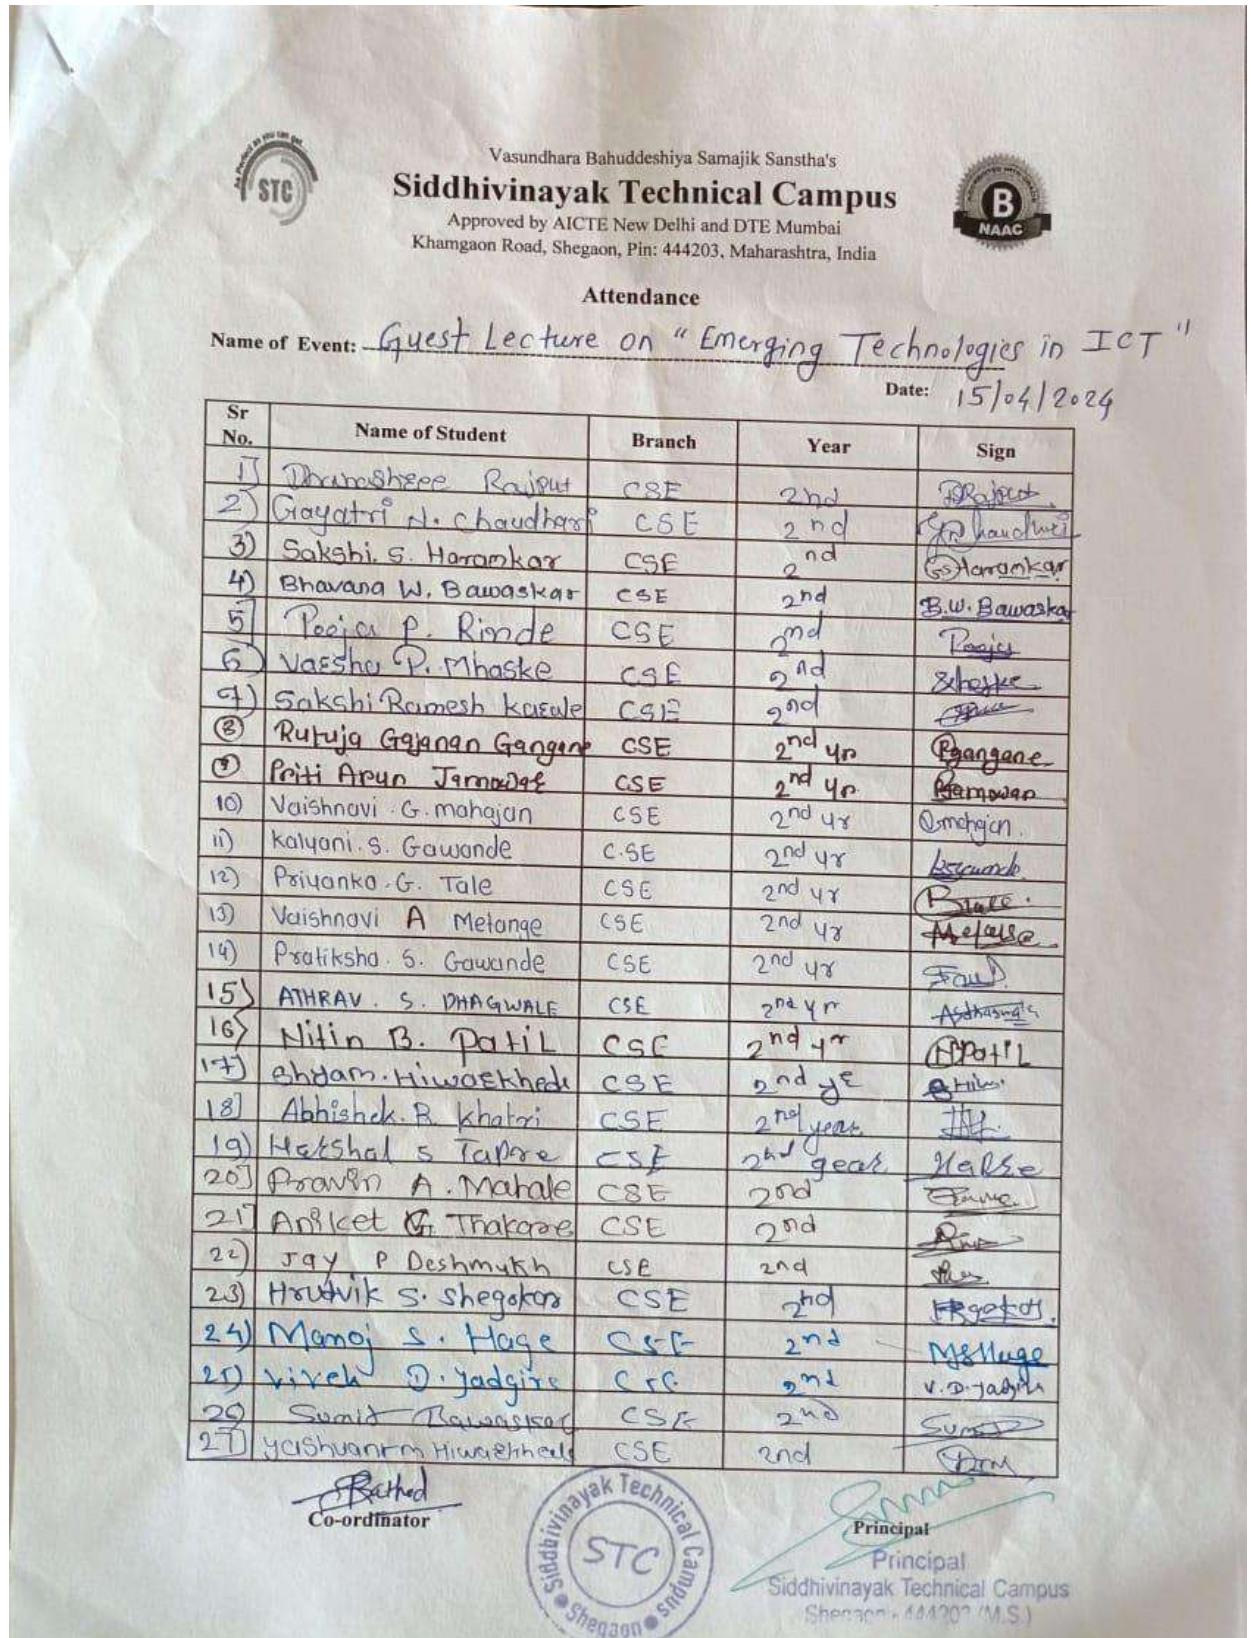 As Perfect as you can get
STC
Vasundhara Bahuddeshiya Samajik Sanstha's
Siddhivinayak Technical Campus
Approved by AICTE New Delhi and DTE Mumbai
Khamgaon Road, Shegaon, Pin: 444203, Maharashtra, India
B
NAAC
Attendance
Name of Event: Guest Lecture on "Emerging Technologies in ICT"
Date: 15/04/2024
Sr No. Name of Student Branch Year Sign
1] Rajput CSE 2nd DRajput
2) Gayatri N. Chaudhari CSE 2nd
3) Sakshi. S. Haramkar CSE 2nd Haramkar
4) Bhavana W. Bawaskar CSE 2nd B.W. Bawaskar
5] Pooja P. Rinde CSE 2nd Pooja
6) Varsha P. Mhaske CSE 2nd
7) Sakshi Ramesh Kasale CSE 2nd
8) Rutuja Gajanan Gangane CSE 2nd yr Rgangane
9) Priti Arun Jamowar CSE 2nd yr
10) Vaishnavi G. mahajan CSE 2nd yr
11) Kalyani. S. Gawande C.SE 2nd yr
12) Priyanka. G. Tale CSE 2nd yr
13) Vaishnavi A Metange CSE 2nd yr
14) Pratiksha. S. Gawande CSE 2nd yr
15) ATHRAV. S. DHAGWALE CSE 2nd yr
16) Nitin B. Patil CSE 2nd yr NPatil
17) Shyam. Hiwarkhede CSE 2nd yr
18] Abhishek. R. Khatri CSE 2nd year
19) Harshal S Tapre CSE 2nd year
20] Pravin A. Mahale CSE 2nd
21] Aniket G Thakare CSE 2nd
22) Jay P Deshmukh CSE 2nd
23) Hrutvik S. Shegokar CSE 2nd
24) Manoj S. Hage CSE 2nd MSHage
25) Vivek D. Yadgire CSE 2nd V.D. Yadgire
26 Sumit Bawaskar CSE 2nd Sumit
27] Hiwarkhede CSE 2nd
SRathod
Co-ordinator
Siddhivinayak Technical Campus
STC
Shegaon
Principal
Principal
Siddhivinayak Technical Campus
Shegaon - 444203 (M.S.)